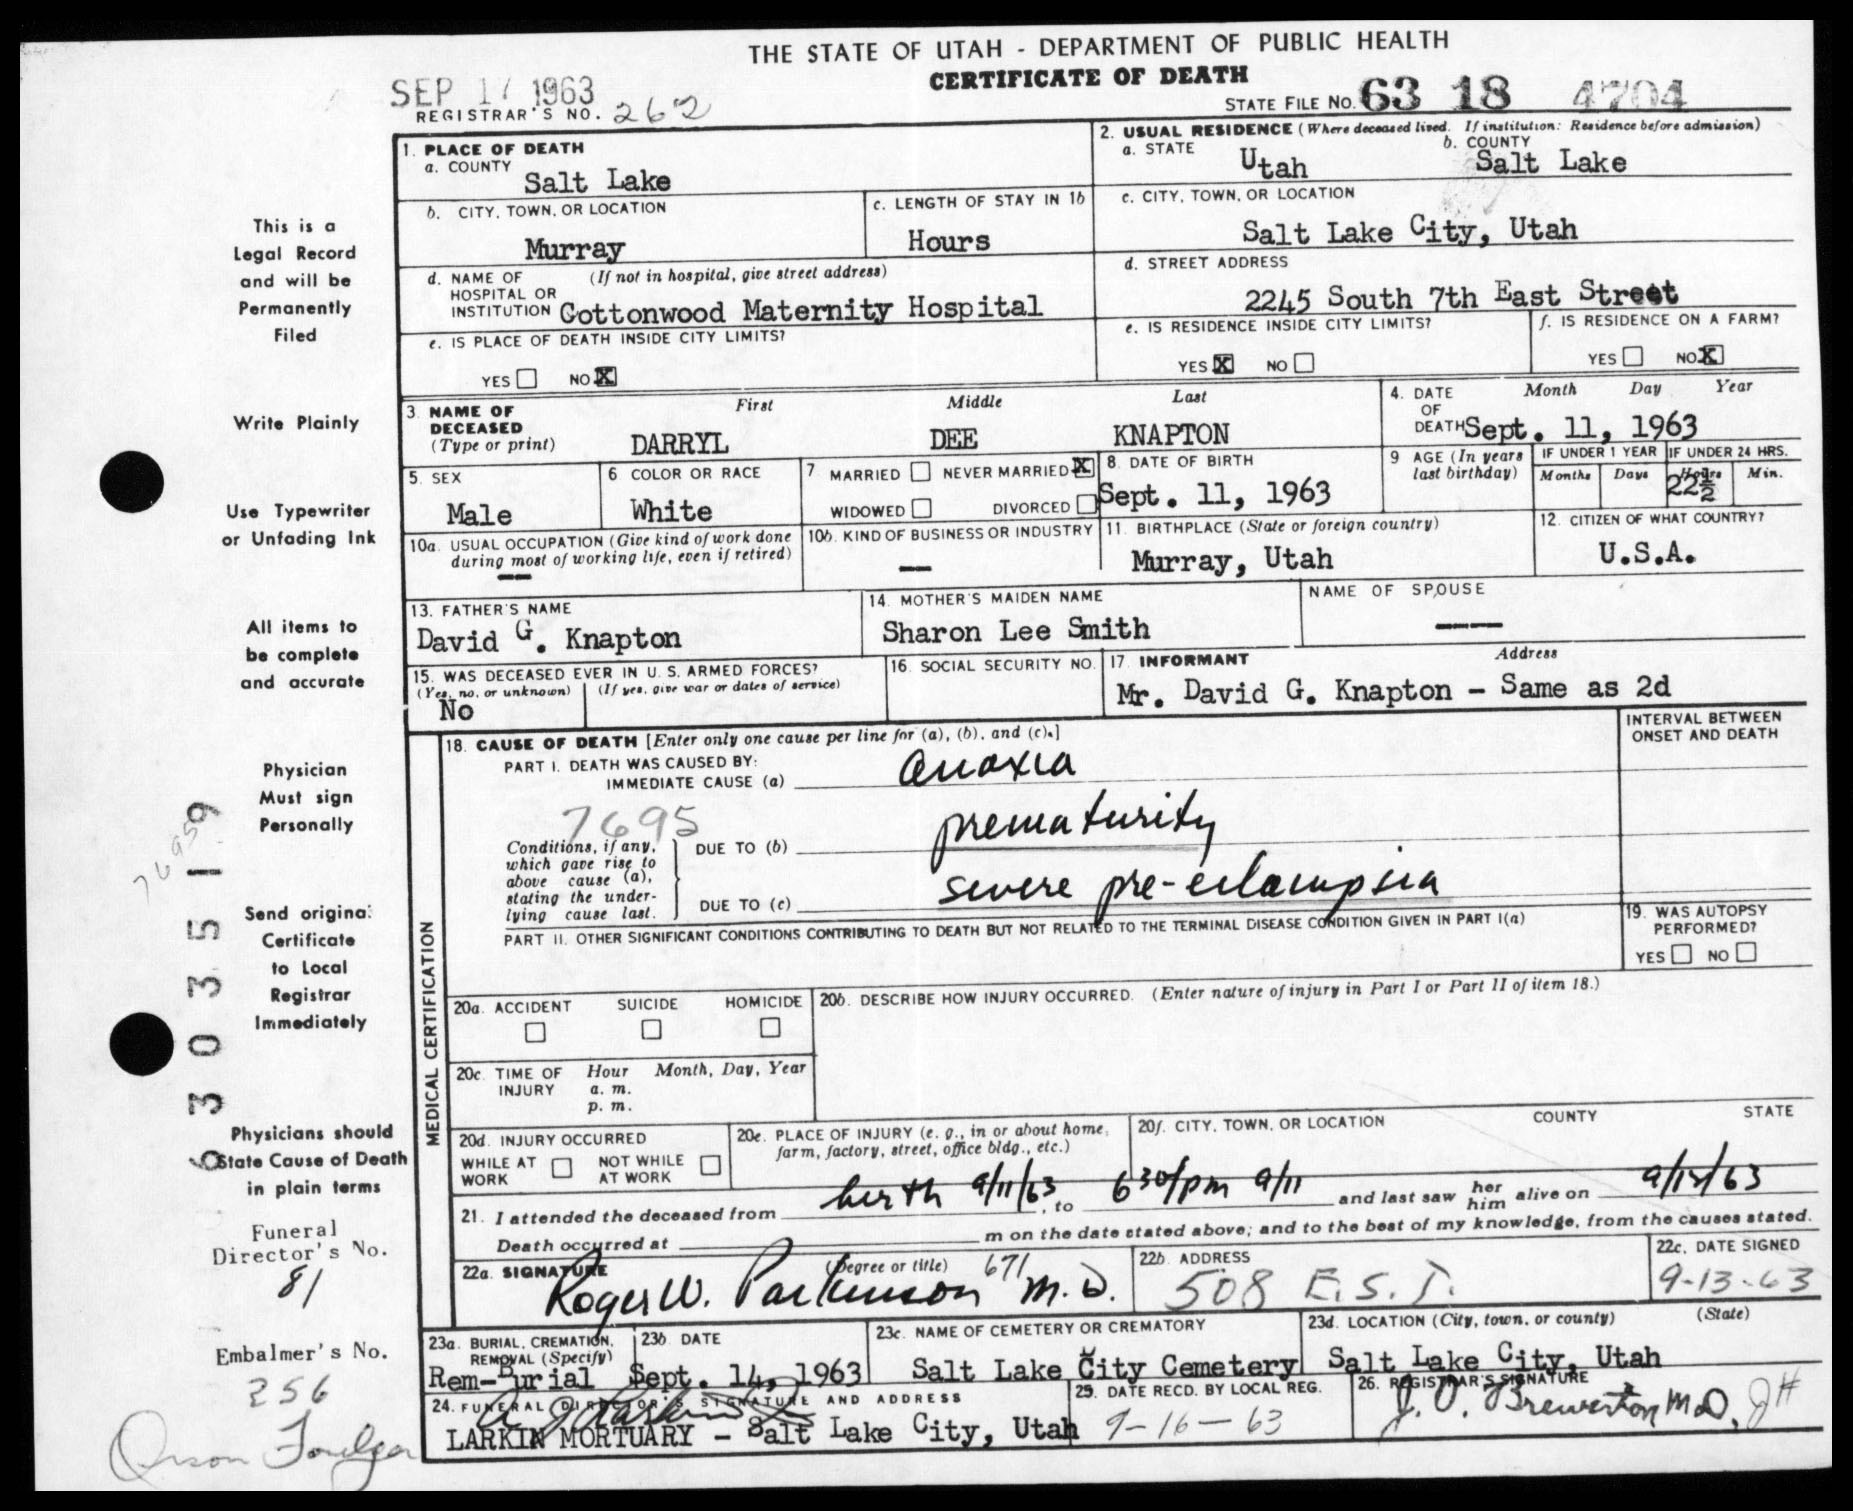 THE STATE OF UTAH - DEPARTMENT OF PUBLIC HEALTH
CERTIFICATE OF DEATH
SEP 17 1963
REGISTRAR'S NO. 262
STATE FILE NO. 63 18 4704
This is a
Legal Record
and will be
Permanently
Filed
Write Plainly
Use Typewriter
or Unfading Ink
All items to
be complete
and accurate
Physician
Must sign
Personally
Send original
Certificate
to Local
Registrar
Immediately
Physicians should
State Cause of Death
in plain terms
Funeral
Director's No.
81
Embalmer's No.
256
Orson Foulger
7695
6303519
1. PLACE OF DEATH
a. COUNTY
Salt Lake
2. USUAL RESIDENCE (Where deceased lived. If institution: Residence before admission)
a. STATE Utah
b. COUNTY Salt Lake
b. CITY, TOWN, OR LOCATION
Murray
c. LENGTH OF STAY IN 1b
Hours
c. CITY, TOWN, OR LOCATION
Salt Lake City, Utah
d. NAME OF (If not in hospital, give street address)
HOSPITAL OR
INSTITUTION Cottonwood Maternity Hospital
d. STREET ADDRESS
2245 South 7th East Street
e. IS PLACE OF DEATH INSIDE CITY LIMITS?
YES NO X
e. IS RESIDENCE INSIDE CITY LIMITS?
YES X NO
f. IS RESIDENCE ON A FARM?
YES NO X
3. NAME OF DECEASED (Type or print)
First Middle Last
DARRYL DEE KNAPTON
4. DATE OF DEATH Month Day Year
Sept. 11, 1963
5. SEX
Male
6 COLOR OR RACE
White
7 MARRIED NEVER MARRIED X
WIDOWED DIVORCED
8. DATE OF BIRTH
Sept. 11, 1963
9 AGE (In years last birthday)
IF UNDER 1 YEAR
Months Days
IF UNDER 24 HRS.
Hours Min.
22½
10a. USUAL OCCUPATION (Give kind of work done
during most of working life, even if retired)
—
10b. KIND OF BUSINESS OR INDUSTRY
—
11. BIRTHPLACE (State or foreign country)
Murray, Utah
12. CITIZEN OF WHAT COUNTRY?
U.S.A.
13. FATHER'S NAME
David G. Knapton
14. MOTHER'S MAIDEN NAME
Sharon Lee Smith
NAME OF SPOUSE
——
15. WAS DECEASED EVER IN U. S. ARMED FORCES?
(Yes, no, or unknown) (If yes, give war or dates of service)
No
16. SOCIAL SECURITY NO.
17. INFORMANT Address
Mr. David G. Knapton - Same as 2d
MEDICAL CERTIFICATION
18. CAUSE OF DEATH [Enter only one cause per line for (a), (b), and (c).]
INTERVAL BETWEEN
ONSET AND DEATH
PART I. DEATH WAS CAUSED BY:
IMMEDIATE CAUSE (a) anoxia
7695
Conditions, if any,
which gave rise to
above cause (a),
stating the under-
lying cause last.
DUE TO (b) prematurity
DUE TO (c) severe pre-eclampsia
PART II. OTHER SIGNIFICANT CONDITIONS CONTRIBUTING TO DEATH BUT NOT RELATED TO THE TERMINAL DISEASE CONDITION GIVEN IN PART I(a)
19. WAS AUTOPSY PERFORMED?
YES NO
20a. ACCIDENT SUICIDE HOMICIDE
20b. DESCRIBE HOW INJURY OCCURRED. (Enter nature of injury in Part I or Part II of item 18.)
20c. TIME OF INJURY Hour Month, Day, Year
a. m.
p. m.
20d. INJURY OCCURRED
WHILE AT WORK NOT WHILE AT WORK
20e. PLACE OF INJURY (e. g., in or about home,
farm, factory, street, office bldg., etc.)
20f. CITY, TOWN, OR LOCATION COUNTY STATE
21. I attended the deceased from birth 9/11/63, to 6 30/pm 9/11 and last saw her him alive on 9/12/63
Death occurred at m on the date stated above; and to the best of my knowledge, from the causes stated.
22a. SIGNATURE (Degree or title) 671
Roger W. Parkinson M.D.
22b. ADDRESS
508 E. S. T.
22c. DATE SIGNED
9-13-63
23a. BURIAL, CREMATION, REMOVAL (Specify)
Rem-Burial
23b. DATE
Sept. 14, 1963
23c. NAME OF CEMETERY OR CREMATORY
Salt Lake City Cemetery
23d. LOCATION (City, town, or county) (State)
Salt Lake City, Utah
24. FUNERAL DIRECTOR'S SIGNATURE AND ADDRESS
LARKIN MORTUARY - Salt Lake City, Utah
25. DATE RECD. BY LOCAL REG.
9-16-63
26. REGISTRAR'S SIGNATURE
J. O. Brewerton M.D. JH